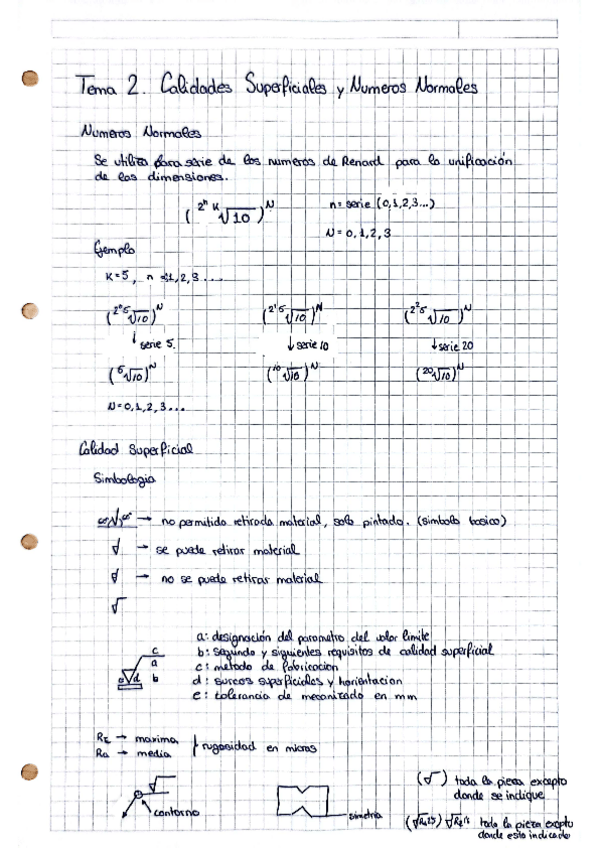 Tema 2. Calidades Superficiales y Numeros Normales
Numeros Normales
Se utiliza para serie de los numeros de Renard para la unificación
de las dimensiones.
(2ⁿ ᴷ√10)ᴺ n = serie (0,1,2,3...)
N = 0,1,2,3
Ejemplo
K=5, n = 1,2,3....
(2⁰5√10)ᴺ (2¹5√10)ᴺ (2²5√10)ᴺ
↓ serie 5. ↓ serie 10 ↓ serie 20
(⁵√10)ᴺ (¹⁰√10)ᴺ (²⁰√10)ᴺ
N = 0,1,2,3...
Calidad Superficial
Simbologia
→ no permitido retirada material, solo pintado. (simbolo basico)
√ → se puede retirar material
√ → no se puede retirar material
√
a: designación del parametro del valor limite
b: segundo y siguientes requisitos de calidad superficial
c: metodo de fabricacion
d: surcos superficiales y horientacion
e: tolerancia de mecanizado en mm
c
a
e √ d b
Rz → maxima
Ra → media } rugosidad en micras
contorno
simetria
(√) toda la pieza excepto
donde se indique
toda la pieza excpto
donde esta indicado